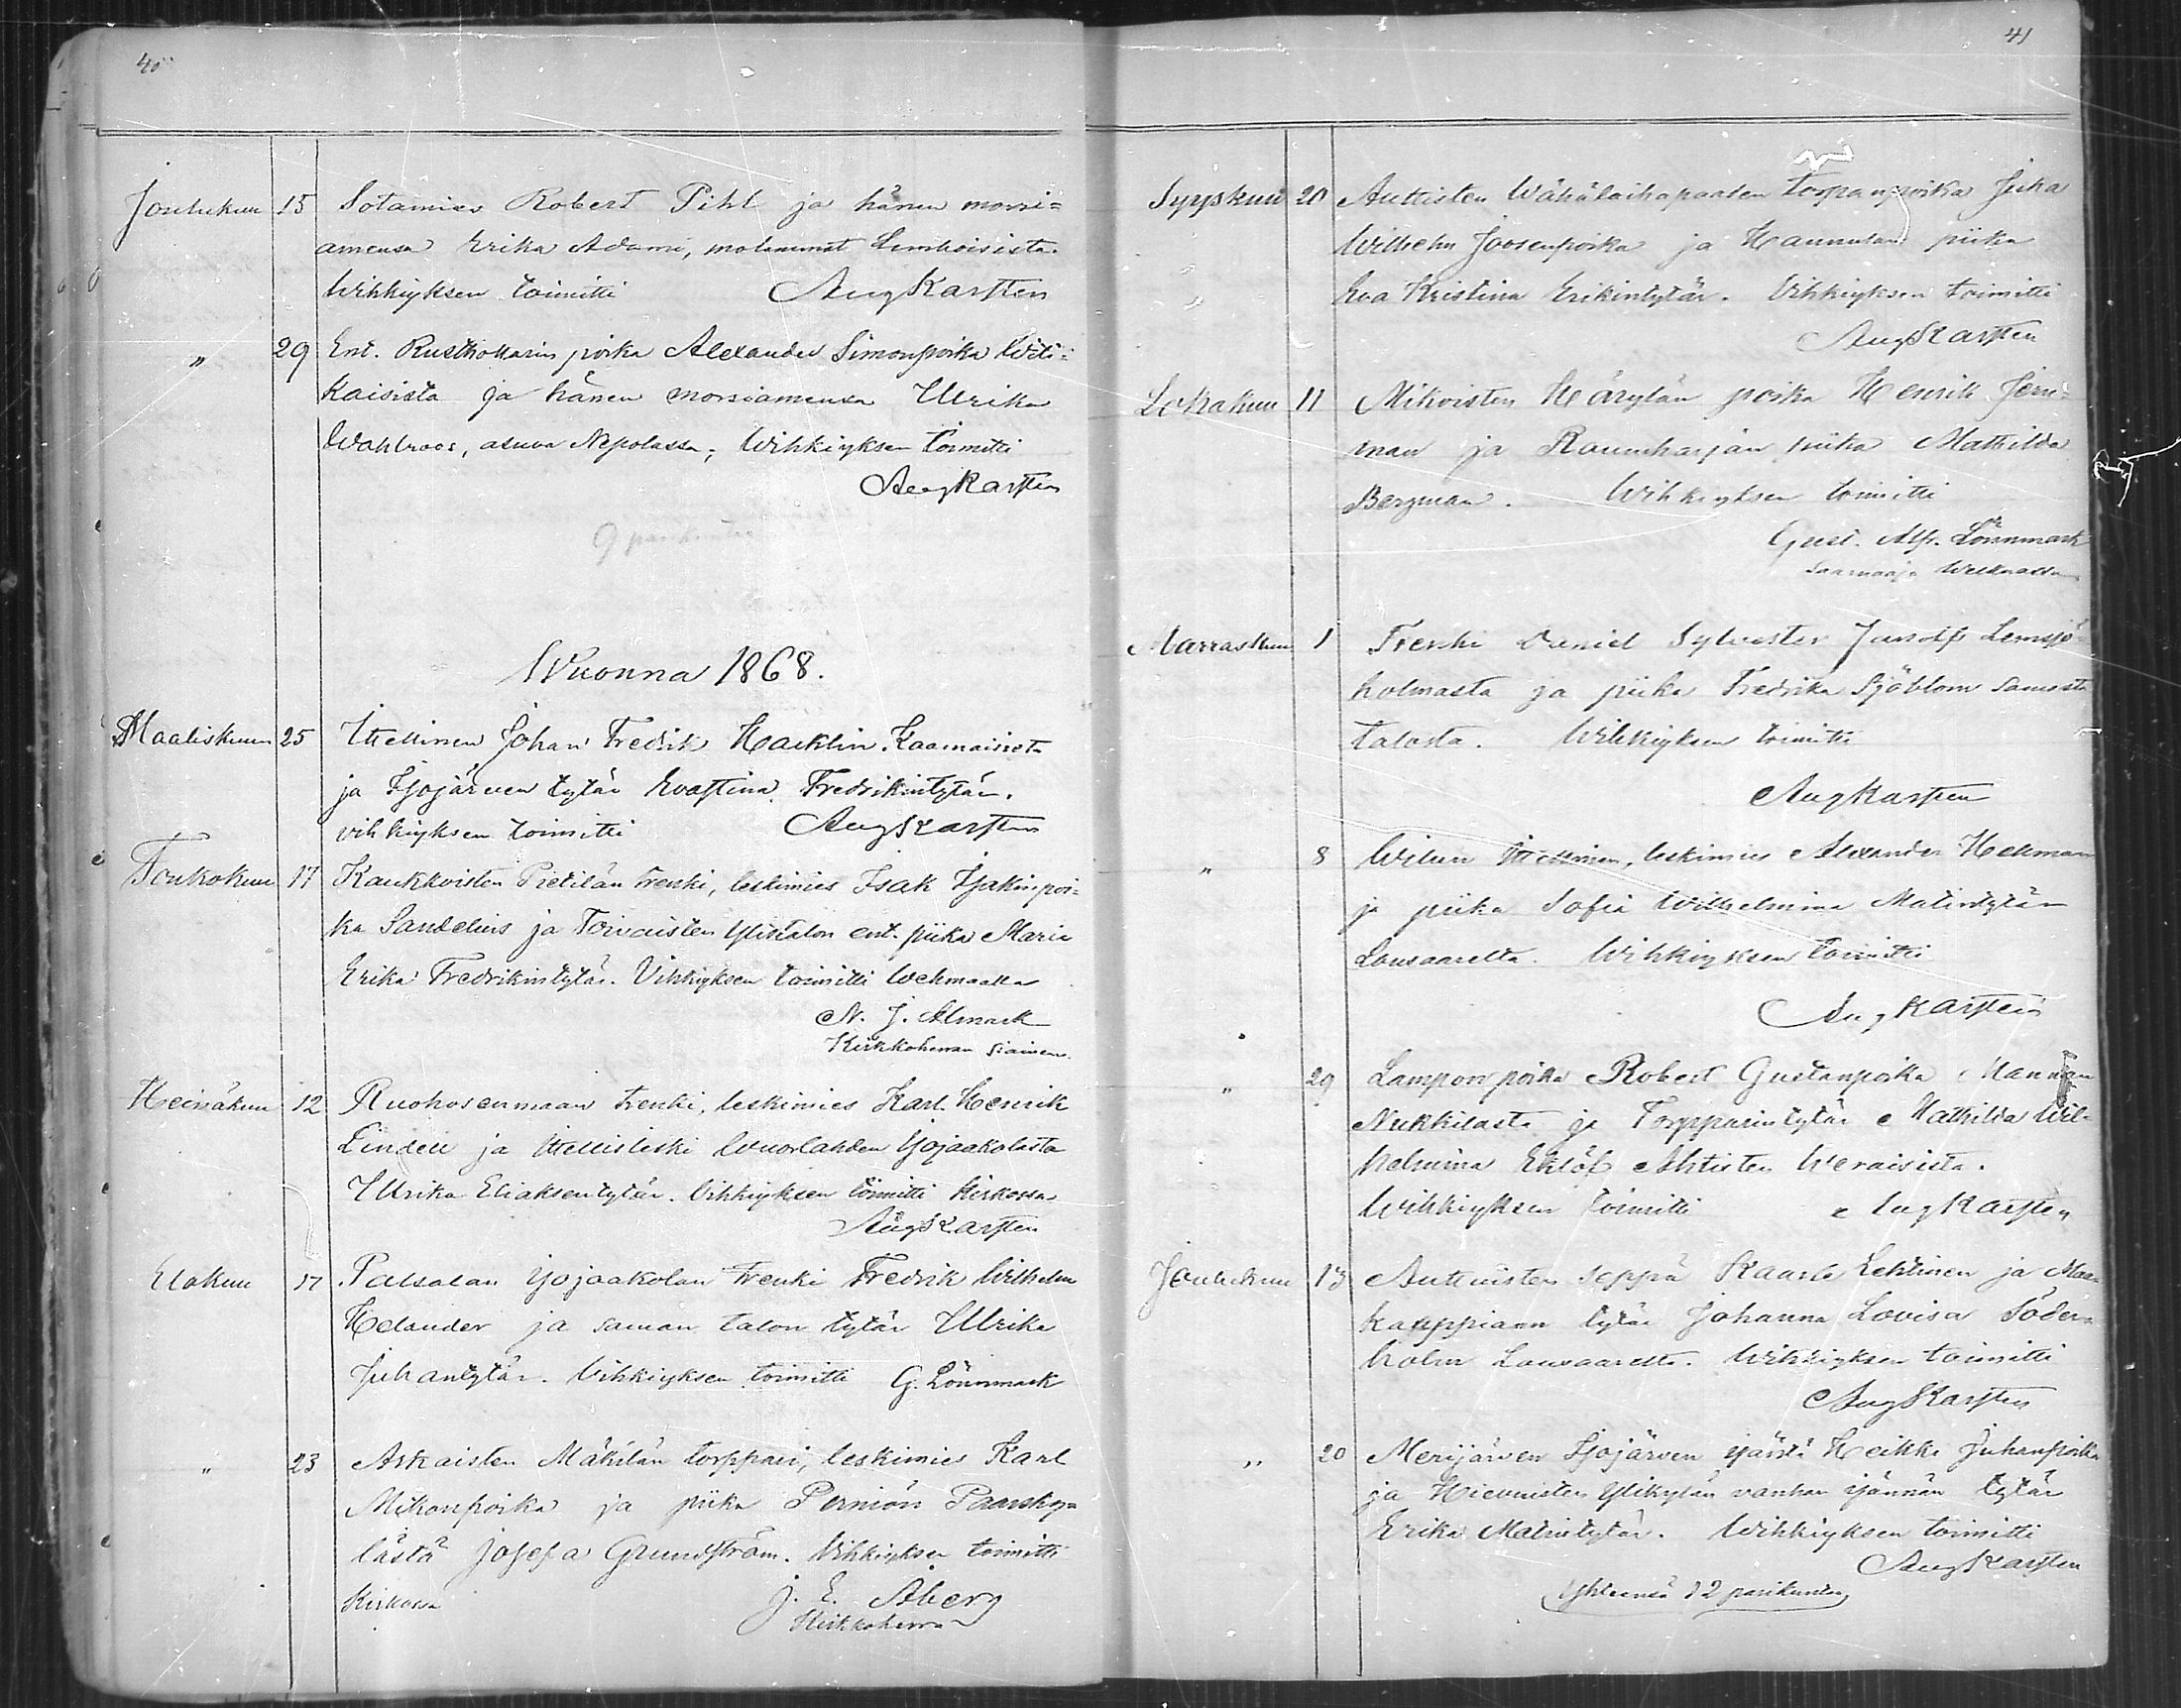 40
Joulukuu 15 Sotamies Robert Pihl ja hänen morsi=
amensa Erika Adami, molemmat Lemboisista.
Wihkiyksen toimitti Aug Karsten
" 29 Ent. Rusthollarin poika Alexander Simonpoika Witi=
kaisista ja hänen morsiamensa Ulrika
Wahlroos, asuva Nepolassa; Wihkiyksen toimitti
Aug Karsten
9 parikuntaa
Wuonna 1868.
Maaliskuu 25 Itellinen Johan Fredrik Hacklin Kaamaisista
ja Isojärven tytär Evastina Fredrikintytär.
vihkiyksen toimitti Aug Karsten
Toukokuu 17 Kaukkoisten Pietilän trenki, leskimies Isak Isakinpoi=
ka Sandelius ja Toivaisten Ylistalon ent. piika Maria
Erika Fredrikintytär. Vihkiyksen toimitti Wehmaalla
N. J. Almark
Kirkkoherran siainen.
Heinäkuu 12 Ruohosenmaan trenki, leskimies Karl Henrik
Lindell ja Itellisleski Wuorlahden Isojaakolasta
Ulrika Eliaksentytär. Vihkiyksen toimitti Kirkossa
Aug Karsten
Elokuu 17 Palsalan Isojaakolan trenki Fredrik Wilhelm
Helander ja saman talon tytär Ulrika
Juhantytär. Vihkiyksen toimitti G. Lönnmark
" 23 Askaisten Mäkilän torppari, leskimies Karl
Mikonpoika ja piika Perniön Paarsky=
lästä Josefa Grundström. Vihkiyksen toimitti
Kirkossa J. E. Åberg
Kirkkoherra
41
Syyskuu 20 Auttisten Wähälaihapaaden Torpanpoika Juha
Wilhelm Joosenpoika ja Hannulan piika
Eva Kristina Erikintytär. Vihkiyksen toimitti
Aug Karsten
Lokakuu 11 Mikoisten Härylän poika Henrik Jern=
man ja Raumharjan piika Mathilda
Bergman. Wihkiyksen toimitti
Gust. Alfr. Lönnmark
Saarnaaja
Marraskuu 1 Trenki Daniel Sylvester Lemsjö=
holmasta ja piika Fredrika Sjöblom samasta
talosta. Wihkiyksen toimitti
Aug Karsten
" 8 Itellinen, leskimies Alexander Hekman
ja piika Sofia Wilhelmina Matintytär
Lousaarelta. Wihkiyksen toimitti
Aug Karsten
" 29 Lampon poika Robert Gustanpoika Mannan
Nukkilasta ja Torpparintytär Mathilda Wil=
helmina Eklöf Ahtisten Weraisista.
Wihkiyksen toimitti Aug Karsten
Joulukuu 13 Auttuisten seppä Kaarle Lehtinen ja Maa=
kauppiaan tytär Johanna Lovisa Söder=
holm Lousaarelta. Wihkiyksen toimitti
Aug Karsten
" 20 Merijärven Isojärven isäntä Heikki Juhanpoika
ja Hiemuisten Ylikylän vanhan isännän tytär
Erika Matintytär. Wihkiyksen toimitti
Aug Karsten
Yhteensä 12 parikuntaa